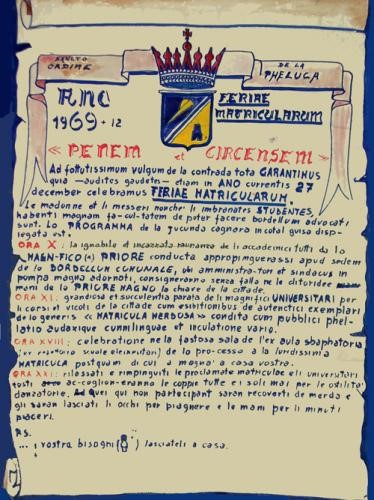 SANCTO
ORDINE
DE LA
PHELUCA
ANC
1969 + 12
FERIAE
MATRICULARUM
« PENEM et CIRCENSEM »
Ad fottutissimum vulgum de la contrada tota GARANTINUS
quia — audites gaudetes — etiam in ANO currentis 27
december celebramus FERIAE MATRICULARUM.
Le madonne et li messeri nonché li imbranates STUDENTES
habenti magnam fa-cul-tatem de poter facere bordellum advocati
sunt. Lo PROGRAMMA de la jucunda cagnara in cotal guisa disp-
legata est.
ORA X : la ignobile et incazzata de li accademici tutti da lo
MAGN-FICO (a) PRIORE conducta appropinguerassi apud sedem
de lo BORDELLUM COMUNALE, ubi amministra-tori et sindacus in
pompa magna adornati, consigneranno senza falla ne le divine
mani de lo PRIORE MAGNO la chiave de la cittade.
ORA XI : grandiosa et succulentia parata de li magnifici UNIVERSITARI per
li corsi et vicoli de la cittade cum esibitionibus de autenctici exemplari
de lo generis « MATRICULA MERDOSA » condita cum pubblici phel-
latio audaxique cunnilinguae et inculatione vario.
ORA XVIII : celebratione ne la fastosa sala de l'ex aula sbaphatoria
(ex scuole elementari) de lo pro-cesso a la luridissima
MATRICULA postquam di cui a magna' a casa vostra.
ORA XXI : rilassati e rimpinguiti le proclamate matricolae et li universitari
tosti ac-coglion-eranno le coppie tutte et i soli mai per le
danzatorie. Ad quei qui non participant saran recoverti de merda e
gli saran lasciati li occhi per piagnere e le mani per li minuti
piaceri.
P.S.
... i vostra bisogni ( ) lasciateli a casa.